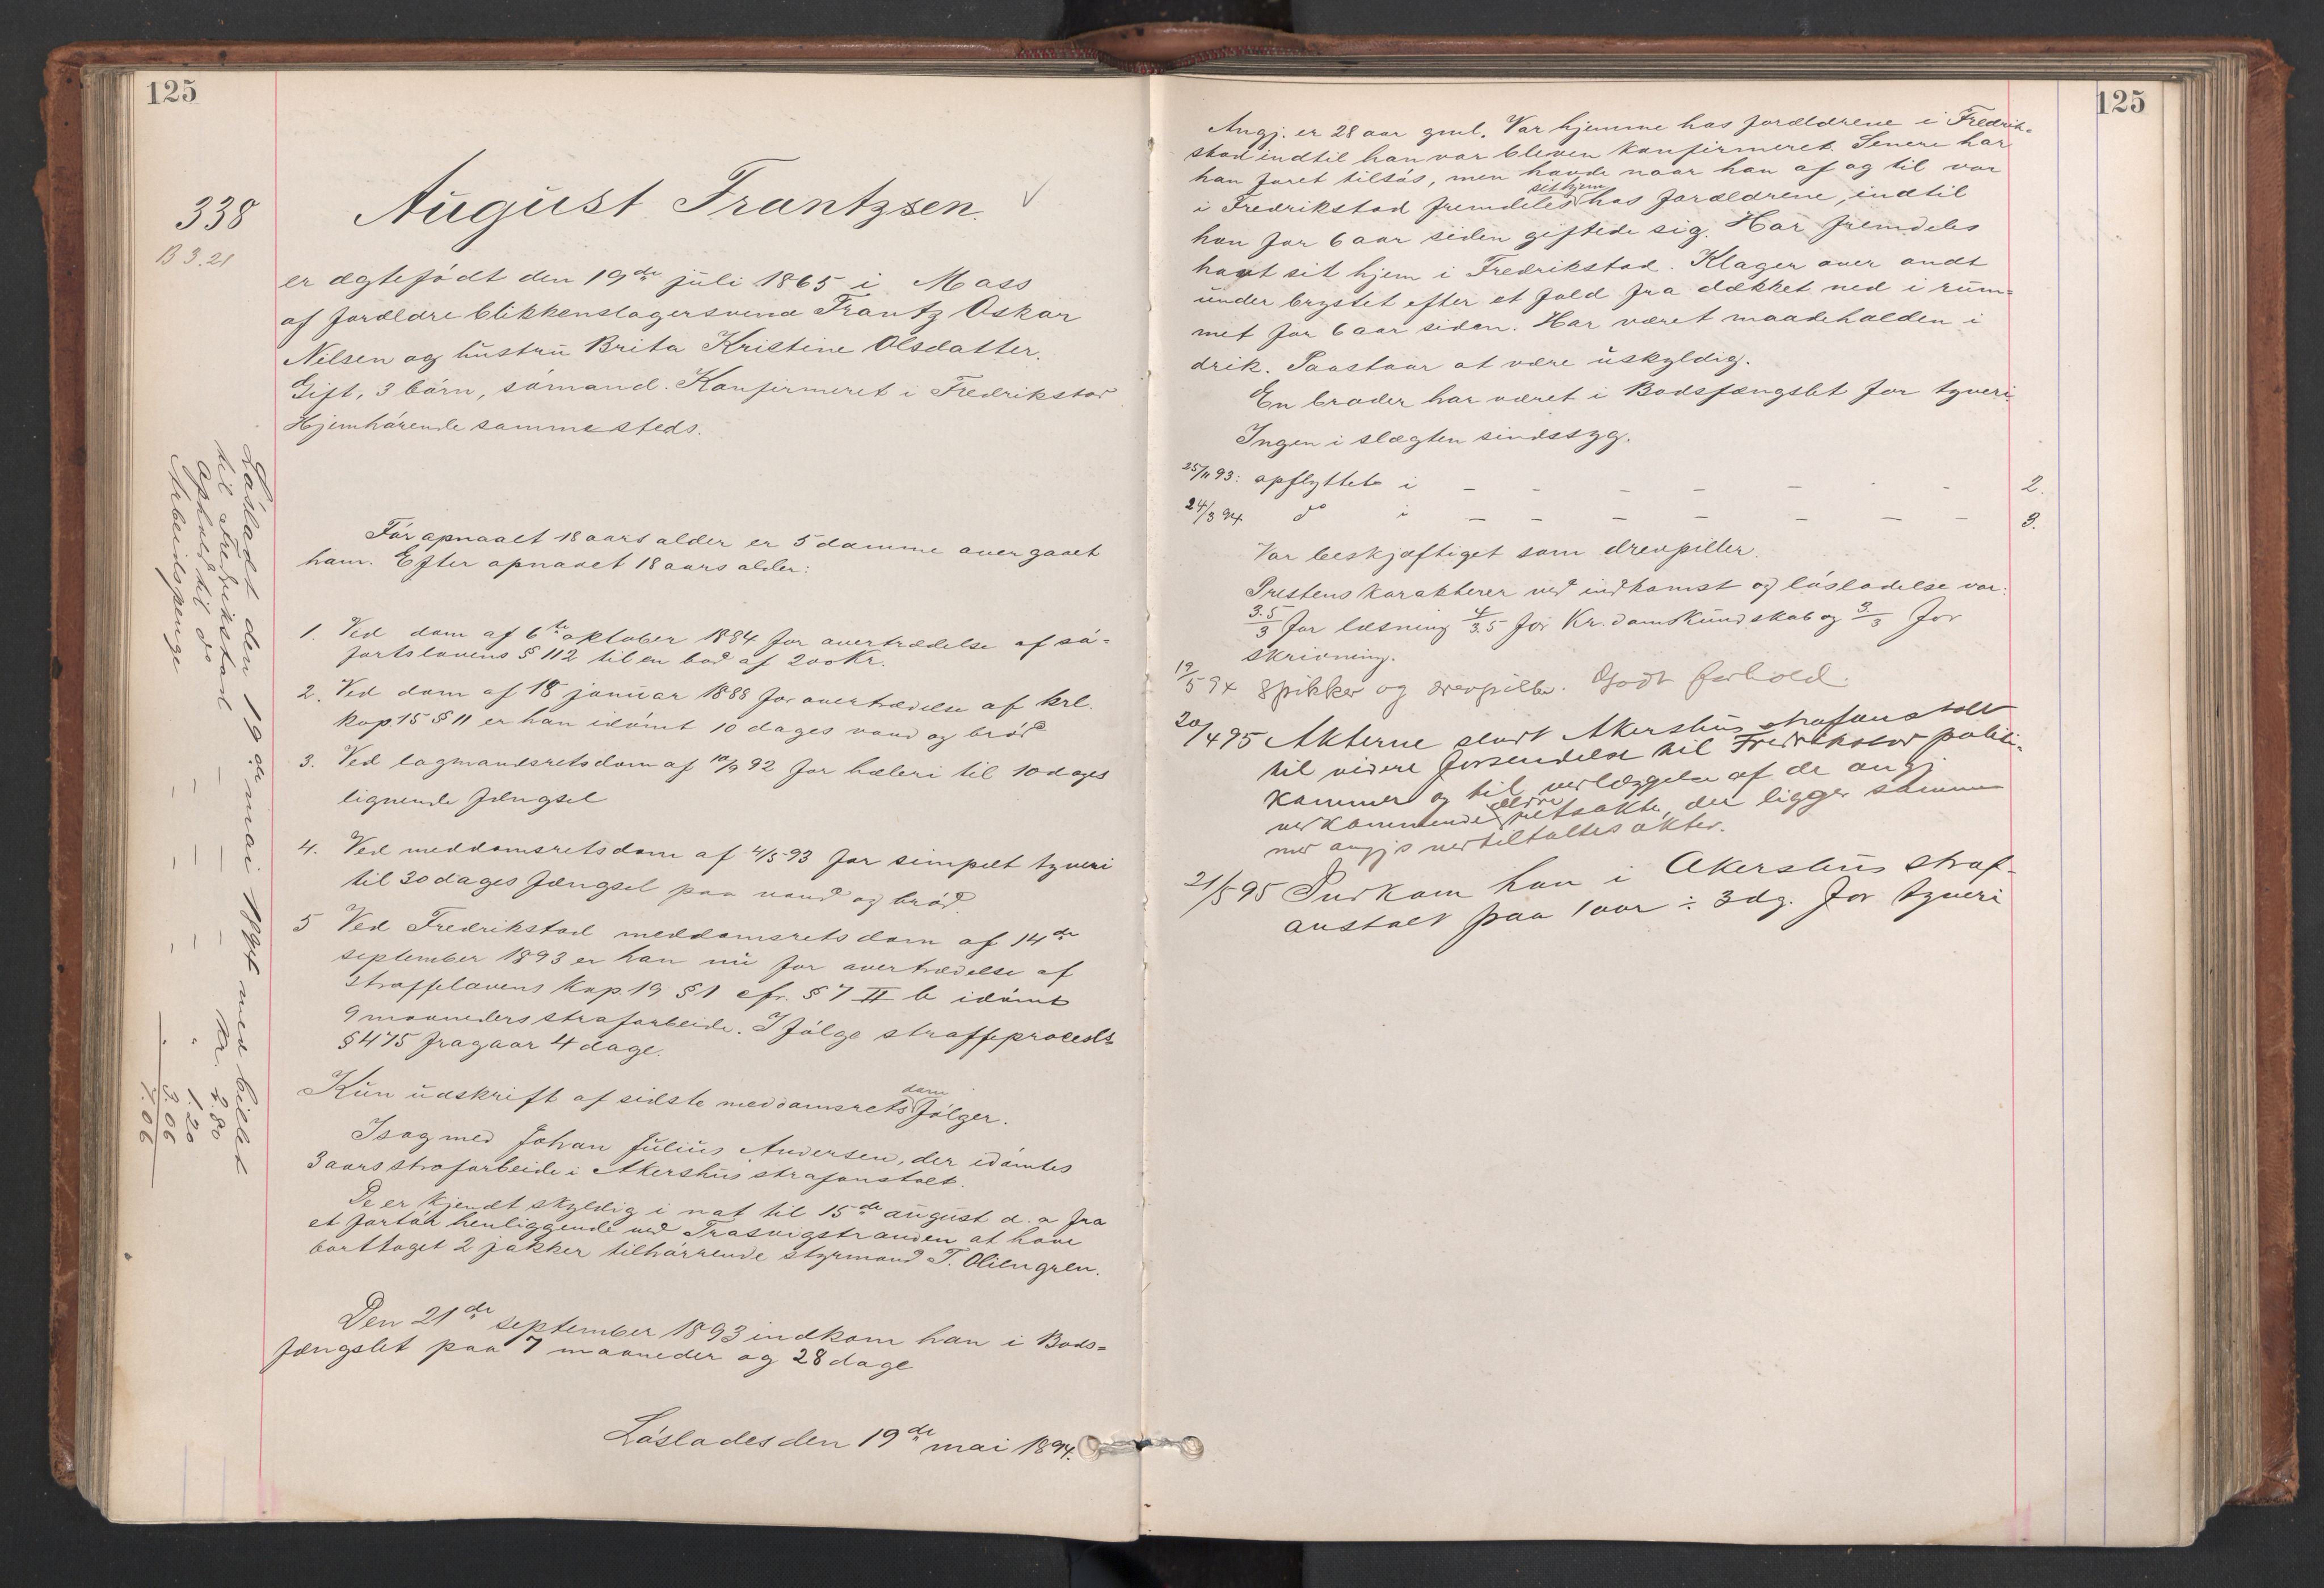 125
338
B 3.21
August Frantzsen. ✓
er ægtefødt den 19de juli 1865 i Moss
af forældre blikkenslagersvend Frantz Oskar
Nilsen og hustru Brita Kristine Olsdatter.
Gift, 3 börn, sömand. Konfirmeret i Fredrikstad
Hjemhörende sammesteds.
Før opnaaet 18 aars alder er 5 domme overgaaet
ham. Efter opnaaet 18 aars alder:
1. Ved dom af 6te oktober 1884 for overtrædelse af sö-
fartslovens § 112 til en bod af 200 Kr.
2. Ved dom af 18 januar 1888 for overtrædelse af krl.
kap. 15 § 11 er han idömt 10 dages vand og bröd
3. Ved lagmandsretsdom af 10/9 92 for hæleri til 10 dages
lignende fængsel
4. Ved meddomsretsdom af 4/5 93 for simpelt tyveri
til 30 dages fængsel paa vand og bröd.
5 Ved Fredrikstad meddomsrets dom af 14de
september 1893 er han nu for overtrædelse af
straffelovens kap. 19 § 1 cfr. § 7 II b idömt
9 maaneders strafarbeide. I fölge straffeprocesls
§ 475 fragaar 4 dage.
Kun udskrift af sidste meddomsrets dom fölger.
I sag med Johan Julius Andersen, der idömtes
3 aars strafarbeide i Akershus strafanstalt.
De er kjendt skyldig i nat til 15de august d. a fra
et fartöi henliggende ved Trasvigstranden at have
borttaget 2 jakker tilhörrende styrmand T. Oliengren.
Den 21de september 1893 indkom han i Bods-
fængslet paa 7 maaneder og 28 dage
Löslades den 19de mai 1894.
Lösladt den 19de mai 1894 med billet
til Fredrikstad — — — Kr. 2.80
ophold til do — — — " 1.20
Arbeidspenge — — — " 3.06
7.06
125
Angj. er 28 aar gml. Var hjemme hos forældrene i Fredrik-
stad indtil han var bleven konfirmeret. Senere har
han faret tilsös, men havde naar han af og til var
i Fredrikstad fremdeles sit hjem hos forældrene, indtil
han for 6 aar siden giftede sig. Har fremdeles
havt sit hjem i Fredrikstad. Klager over ondt
under brystet efter et fald fra dækket ned i rum-
met for 6 aar siden. Har været maadeholden i
drik. Paastaar at være uskyldig.
En broder har været i Bodsfængslet for tyveri.
Ingen i slægten sindssyg.
25/11 93: opflyttet i — — — — — — — 2.
24/3 94 do i — — — — — — — 3.
Var beskjæftiget som drevpiller.
Prestens karakterer ved indkomst og lösladelse var:
3.5/3 for læsning 4/3.5 for Kr.domskundskab og 3/3 for
skrivning.
19/5 94 Spikker og drevpiller. Godt forhold.
20/4 95 Akterne sendt Akershus strafanstalt
til videre forsendelse til Fredrikstad politi-
kammer og til vedlæggelse af de angj
vedkommende ældre retsakter, der ligger sammen
med angjs medtiltaltes akter.
21/5 95 Indkom han i Akershus straf-
anstalt paa 1 aar ÷ 3 dg. for tyveri